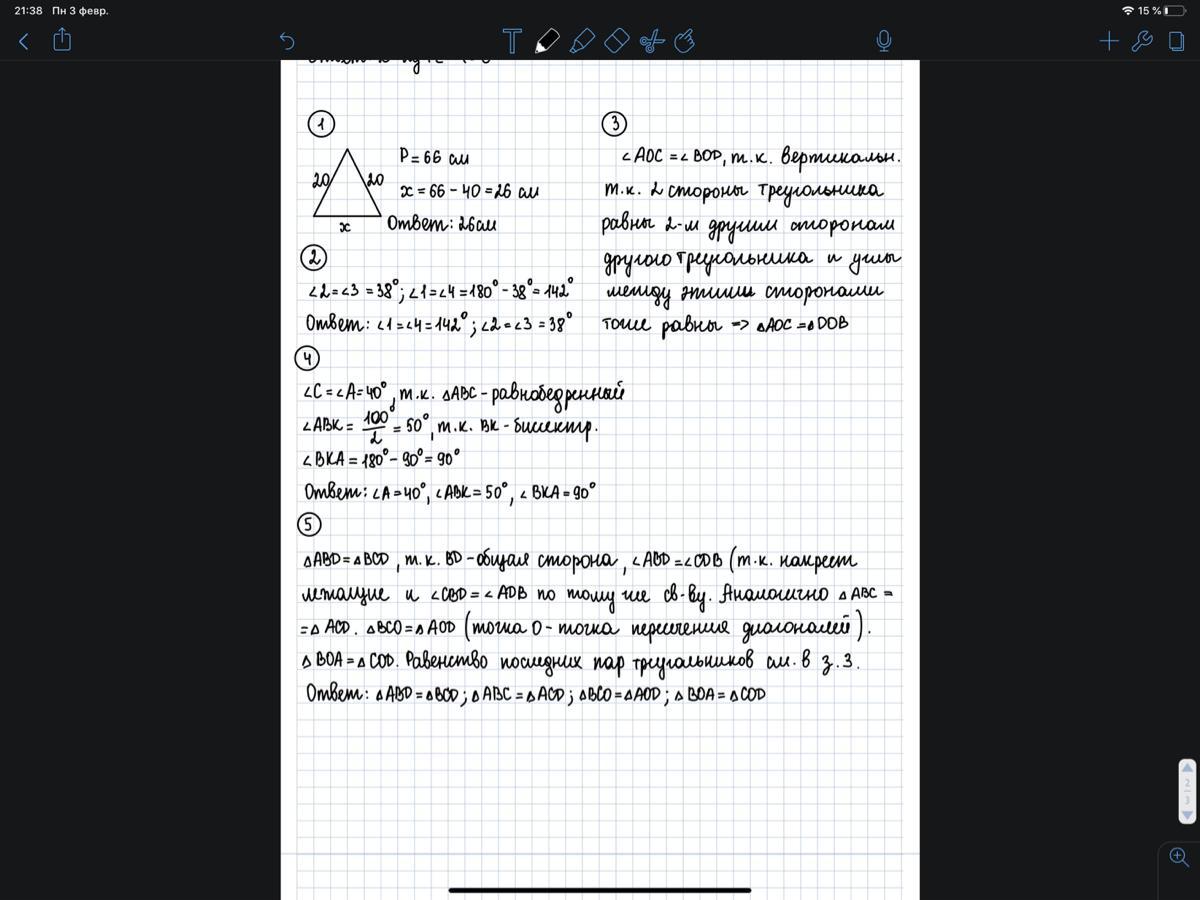 21:38 Пн 3 февр.
15 %
T
1
20 20
x
P = 66 см
x = 66 - 40 = 26 см
Ответ: 26см
2
∠2=∠3 = 38°; ∠1=∠4 = 180° - 38° = 142°
Ответ: ∠1=∠4 = 142°; ∠2=∠3 = 38°
3
∠AOC = ∠BOD, т.к. вертикальн.
т.к. 2 стороны треугольника
равны 2-м другим сторонам
другого треугольника и углы
между этими сторонами
тоже равны => △AOC = △DOB
4
∠C = ∠A = 40°, т.к. △ABC - равнобедренный
∠ABK = 100°/2 = 50°, т.к. BK - биссектр.
∠BKA = 180° - 90° = 90°
Ответ: ∠A = 40°, ∠ABK = 50°, ∠BKA = 90°
5
△ABD = △BCD, т.к. BD - общая сторона, ∠ABD = ∠CDB (т.к. накрест
лежащие и ∠CBD = ∠ADB по тому же св-ву. Аналогично △ABC =
= △ACD. △BCO = △AOD (точка O - точка пересечения диагоналей).
△BOA = △COD. Равенство последних пар треугольников см. в з.3.
Ответ: △ABD = △BCD; △ABC = △ACD; △BCO = △AOD; △BOA = △COD
2
3